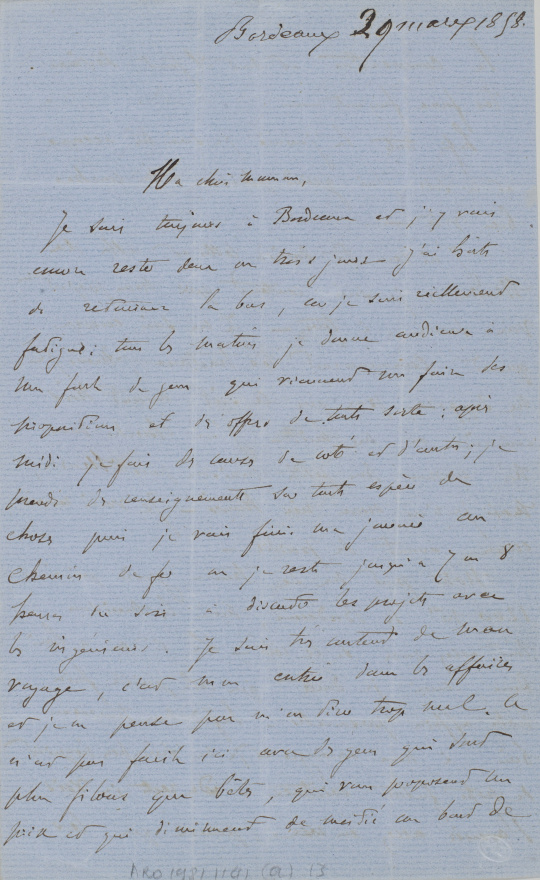 Bordeaux 29 mars 1858.
Ma chère maman,
Je suis toujours à Bordeaux et j'y vais
encore rester deux ou trois jours j'ai hâte
de retourner là bas, car je suis réellement
fatigué; tous les matins je donne audience à
une foule de gens qui viennent me faire des
propositions et des offres de toute sorte; après
midi je fais des courses de coté et d'autre; je
prends des renseignements sur toute espèce de
choses puis je vais finir ma journée au
chemin de fer où je reste jusqu'à 7 ou 8
heures du soir à discuter les projets avec
les ingénieurs. Je suis très content de mon
voyage, c'est mon entrée dans les affaires
et je ne pense pas m'en tirer trop mal. Ce
n'est pas facile ici avec des gens qui sont
plus filous que bêtes, qui vous proposent un
prix et qui diminuent de moitié au bout de
ARO 1981 1141 (a) 13